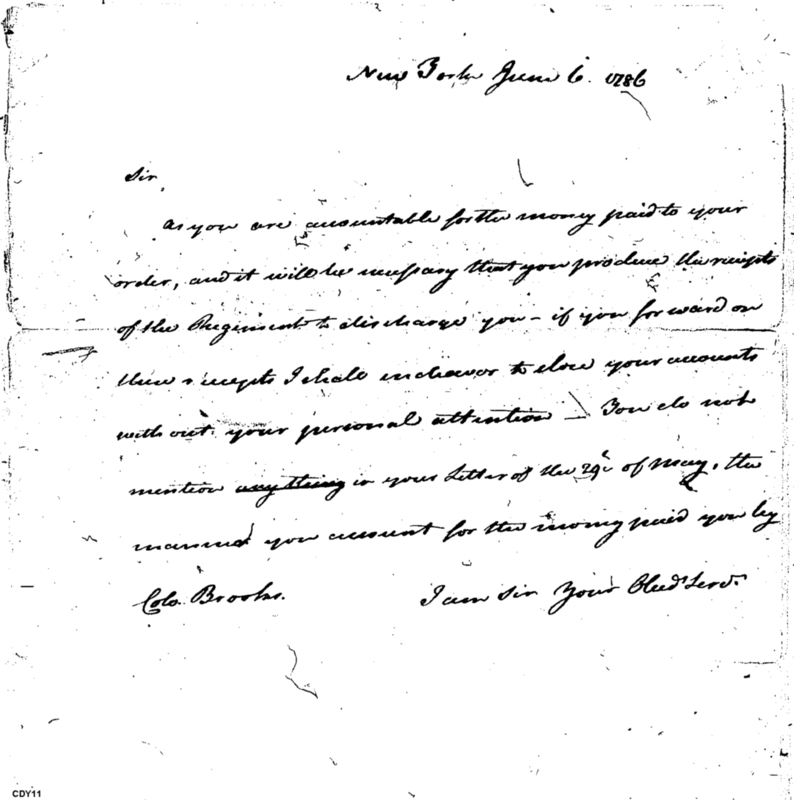 New York June 6. 1786
Sir,
As you are accountable for the money paid to your
order, and it will be necessary that you produce the receipts
of the Regiment to discharge you - if you forward on
these receipts I shall endeavor to close your accounts
without your personal attention _ You do not
mention any thing in your Letter of the 29th of May, the
manner you account for the money paid you by
Colo Brooks.
I am Sir Your Obedt Servt
CDY11